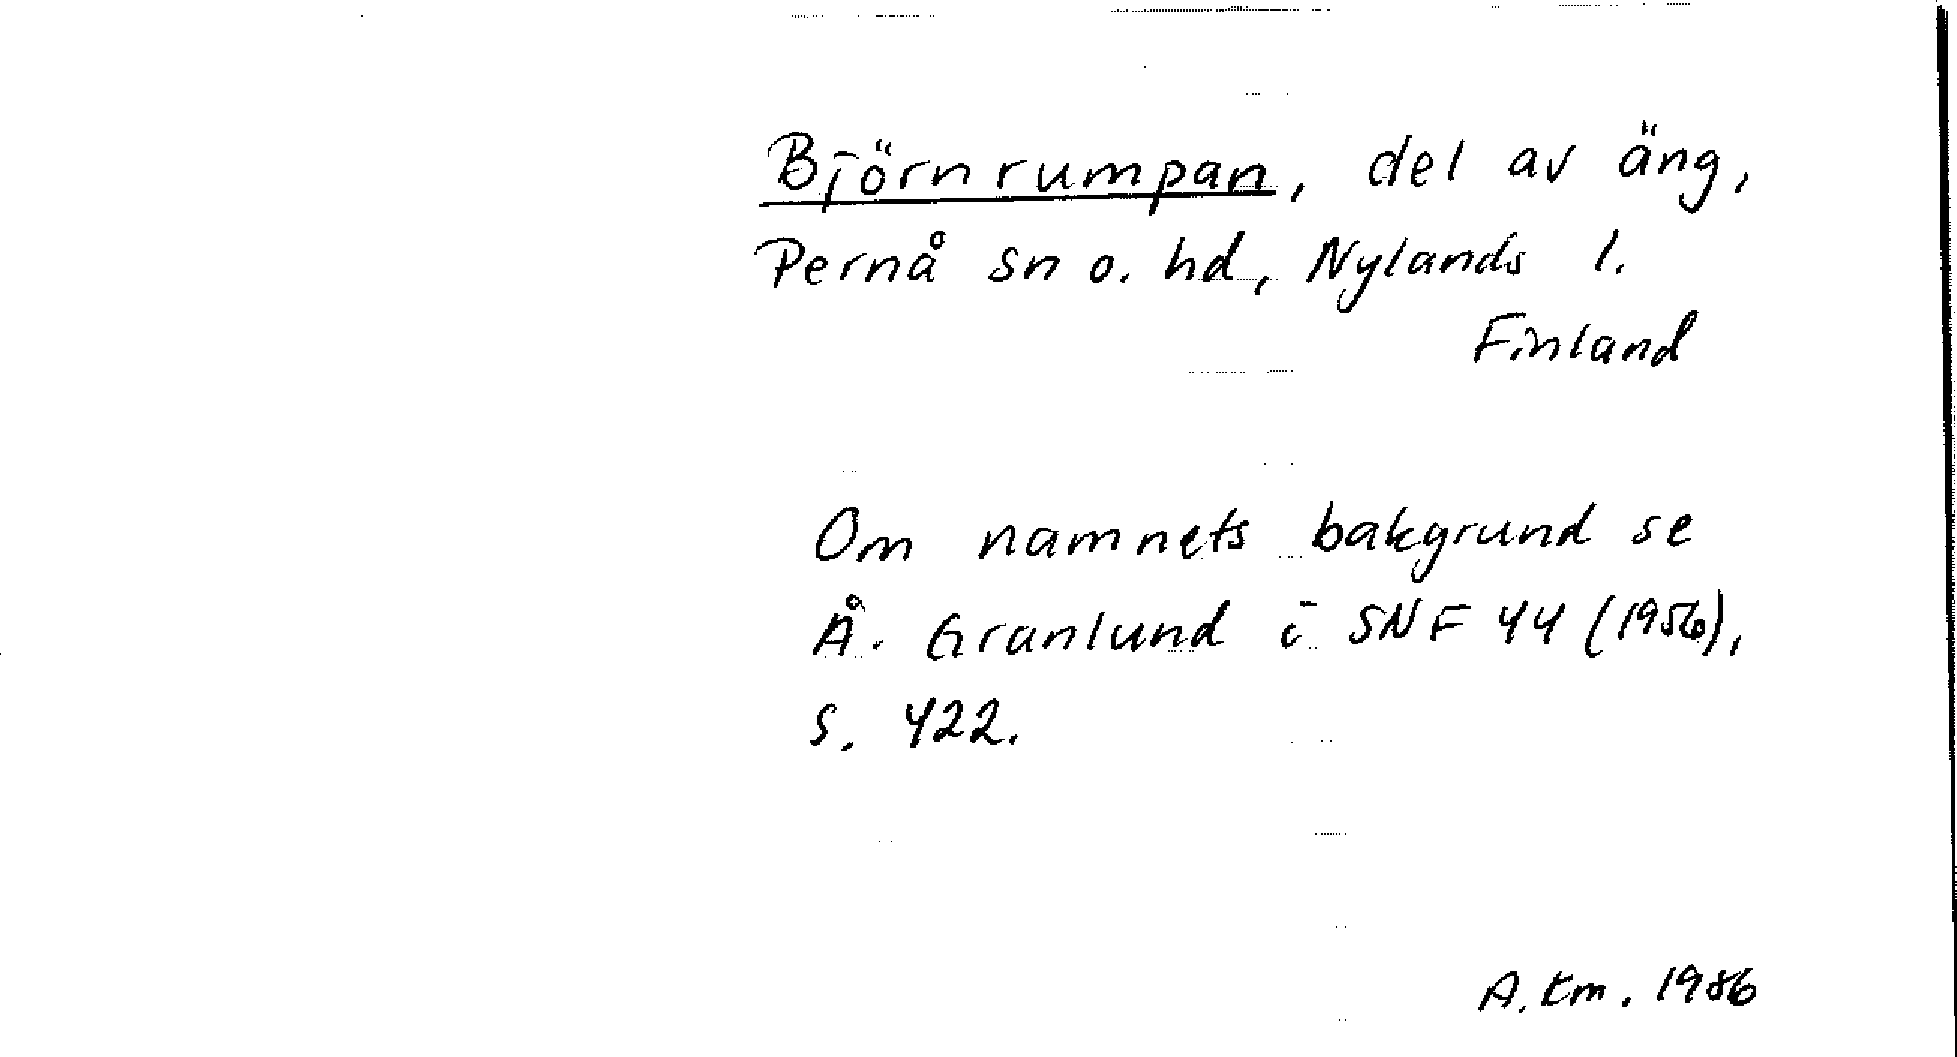 Björnrumpan, del av äng,
Pernå sn o. hd, Nylands l.
Finland
Om namnets bakgrund se
Å. Granlund i SNF 44 (1956),
s. 422.
A. Km. 1986